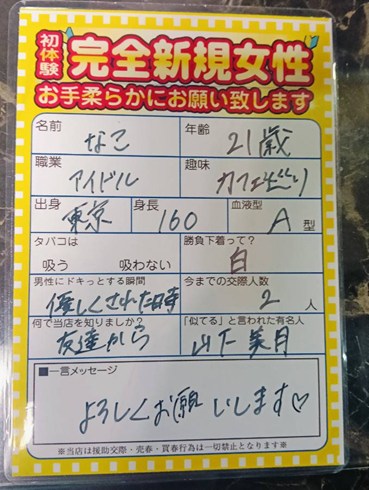 初体験 完全新規女性
お手柔らかにお願い致します
名前 なこ 年齢 21歳
職業 アイドル 趣味 カフェ巡り
出身 東京 身長 160 血液型 A型
タバコは 吸う 吸わない 勝負下着って? 白
男性にドキっとする瞬間 優しくされた時 今までの交際人数 2人
何で当店を知りましたか? 友達から 「似てる」と言われた有名人 山下美月
■一言メッセージ
よろしくお願いします♡
※当店は援助交際・売春・買春行為は一切禁止となります※